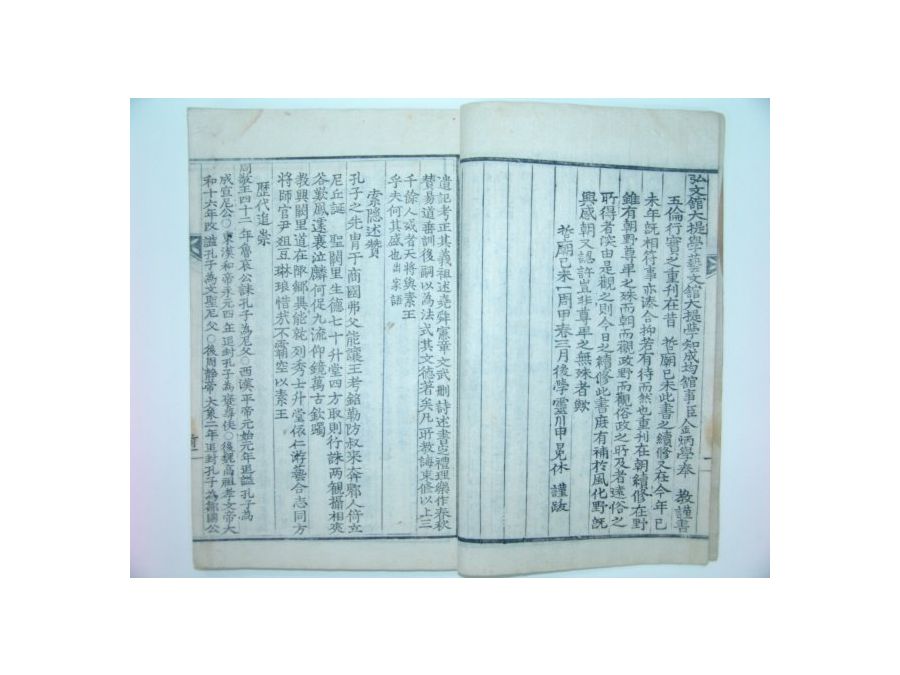 弘文館大提學藝文館大提學知成均館事臣金炳學奉 敎謹書
五倫行實之重刊在昔 哲廟己未此書之續修又在今年己
未年旣相符事亦湊合抑若有待而然也重刊在朝續修在野
雖有朝野尊卑之殊而朝而觀政野而觀俗政之所及者遠俗之
所得者深由是觀之則今日之續修此書庶有補於風化野旣
興感朝又認許豈非尊卑之無殊者歟
哲廟己未一周甲春三月後學靈川申冕休 謹跋
遺記考正其義祖述堯舜憲章文武刪詩述書定禮理樂作春秋
贊易道垂訓後嗣以為法式其文德著矣凡所敎誨束脩以上三
千餘人或者天將與素王
乎夫何其盛也出家語
索隱述贊
孔子之先胄于商國弗父能讓王考銘勒防叔來奔鄹人掎立
尼丘誕 聖闕里生德七十升堂四方取則行誅兩觀攝相夾
谷歎鳳遽衰泣麟何促九流仰鏡萬古欽躅
敎興闕里道在陬鄹異能就列秀士升堂依仁游藝合志同方
將師宮尹俎豆琳琅惜哉不霸空以素王
歷代追崇
周敬王四十二年魯哀公誄孔子為尼父○西漢平帝元始元年追諡孔子為
成宣尼公○東漢和帝永元四年封孔子為褒尊侯○後魏高祖孝文帝大
和十六年改諡孔子為文聖尼父○後周靜帝大象二年追封孔子為鄒國公